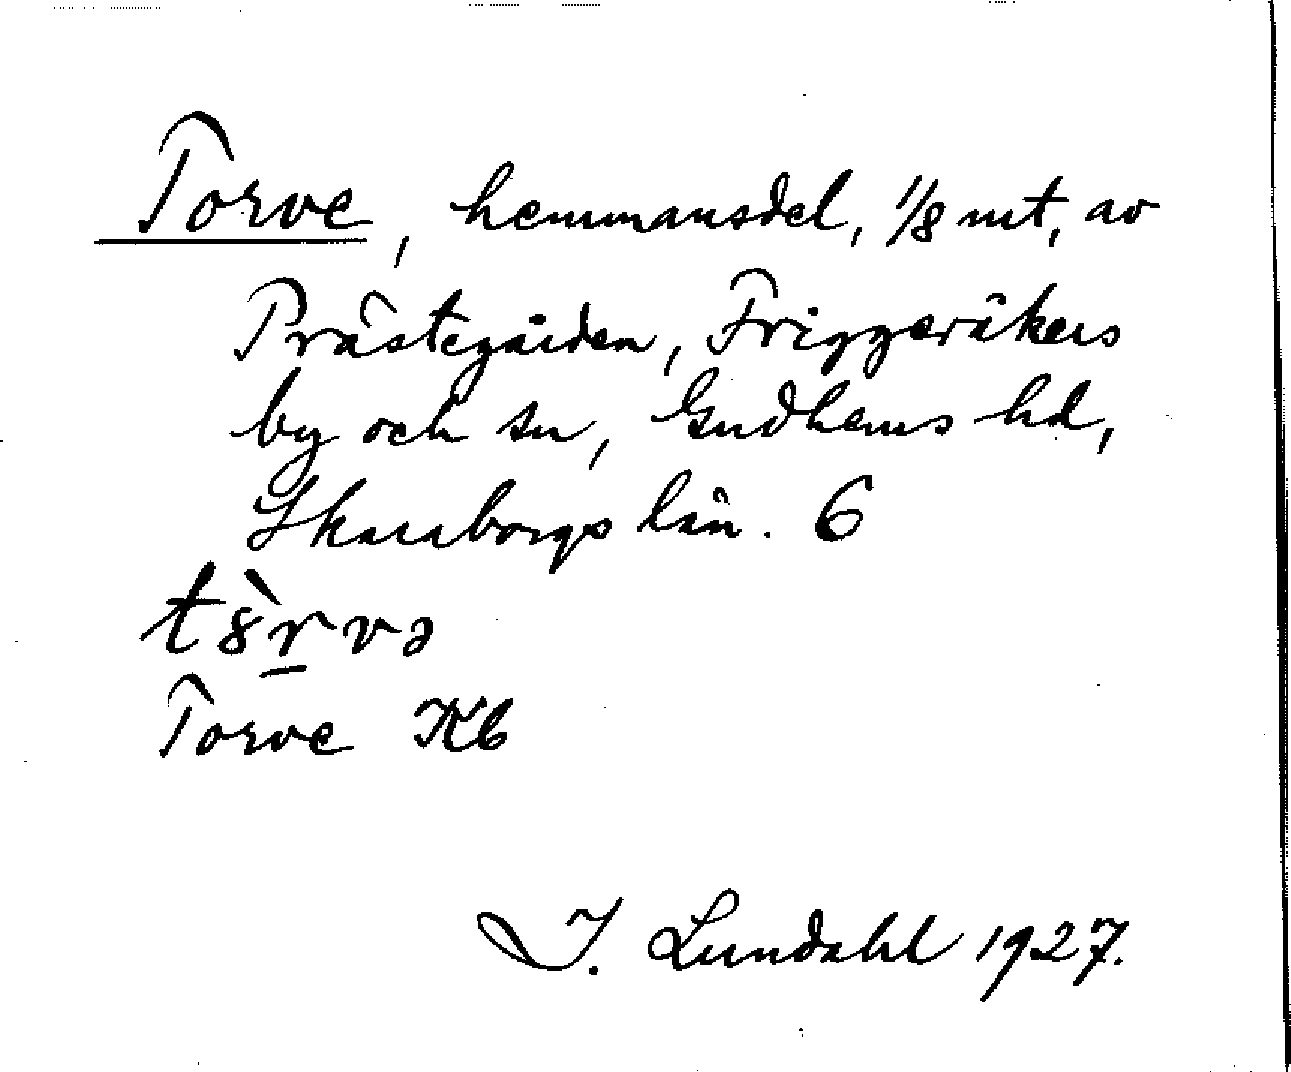 Torve, hemmansdel, 1/8 mt, av
Prästegården, Friggeråkers
by och sn, Gudhems hd,
Skaraborgs län. 6
t8̀r̲və
Torve Kb
I. Lundahl 1927.